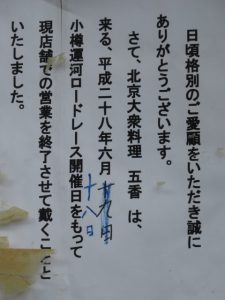 日頃格別のご愛顧をいただき誠に
ありがとうございます。
さて、北京大衆料理 五香 は、
来る、平成二十八年六月
十八日
小樽運河ロードレース開催日をもって
現店舗での営業を終了させて戴くことと
いたしました。